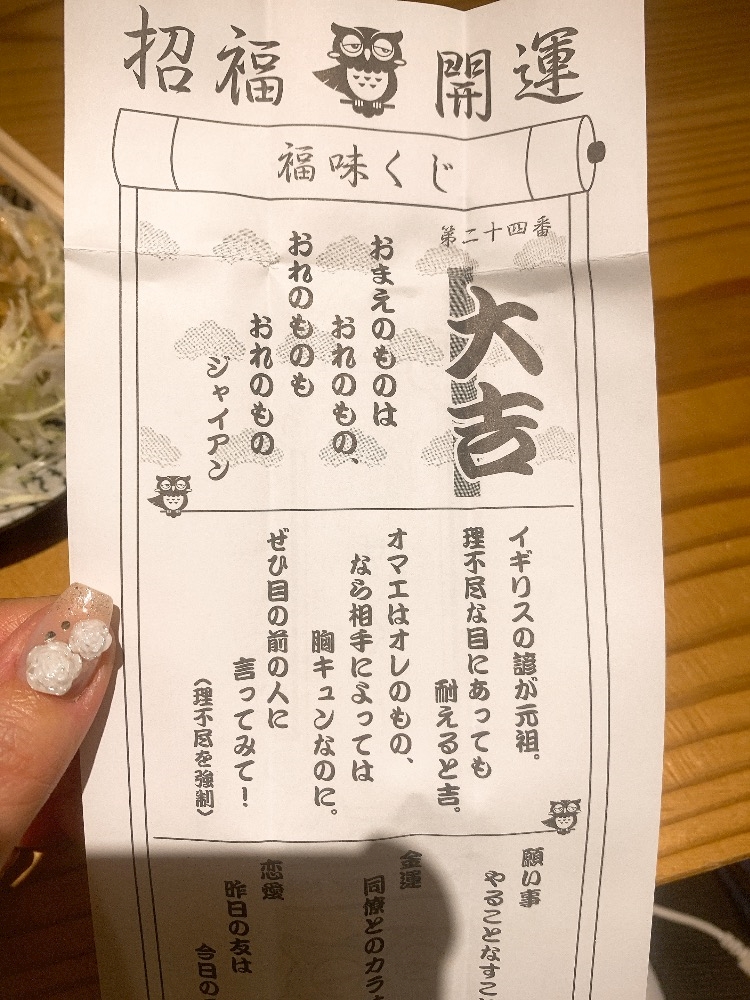 招福 開運
福味くじ
第二十四番
大吉
おまえのものは
おれのもの、
おれのものも
おれのもの
ジャイアン
イギリスの諺が元祖。
理不尽な目にあっても
耐えると吉。
オマエはオレのもの、
なら相手によっては
胸キュンなのに。
ぜひ目の前の人に
言ってみて!
(理不尽を強制)
願い事
やることなすこ
金運
同僚とのカラ
恋愛
昨日の友は
今日の